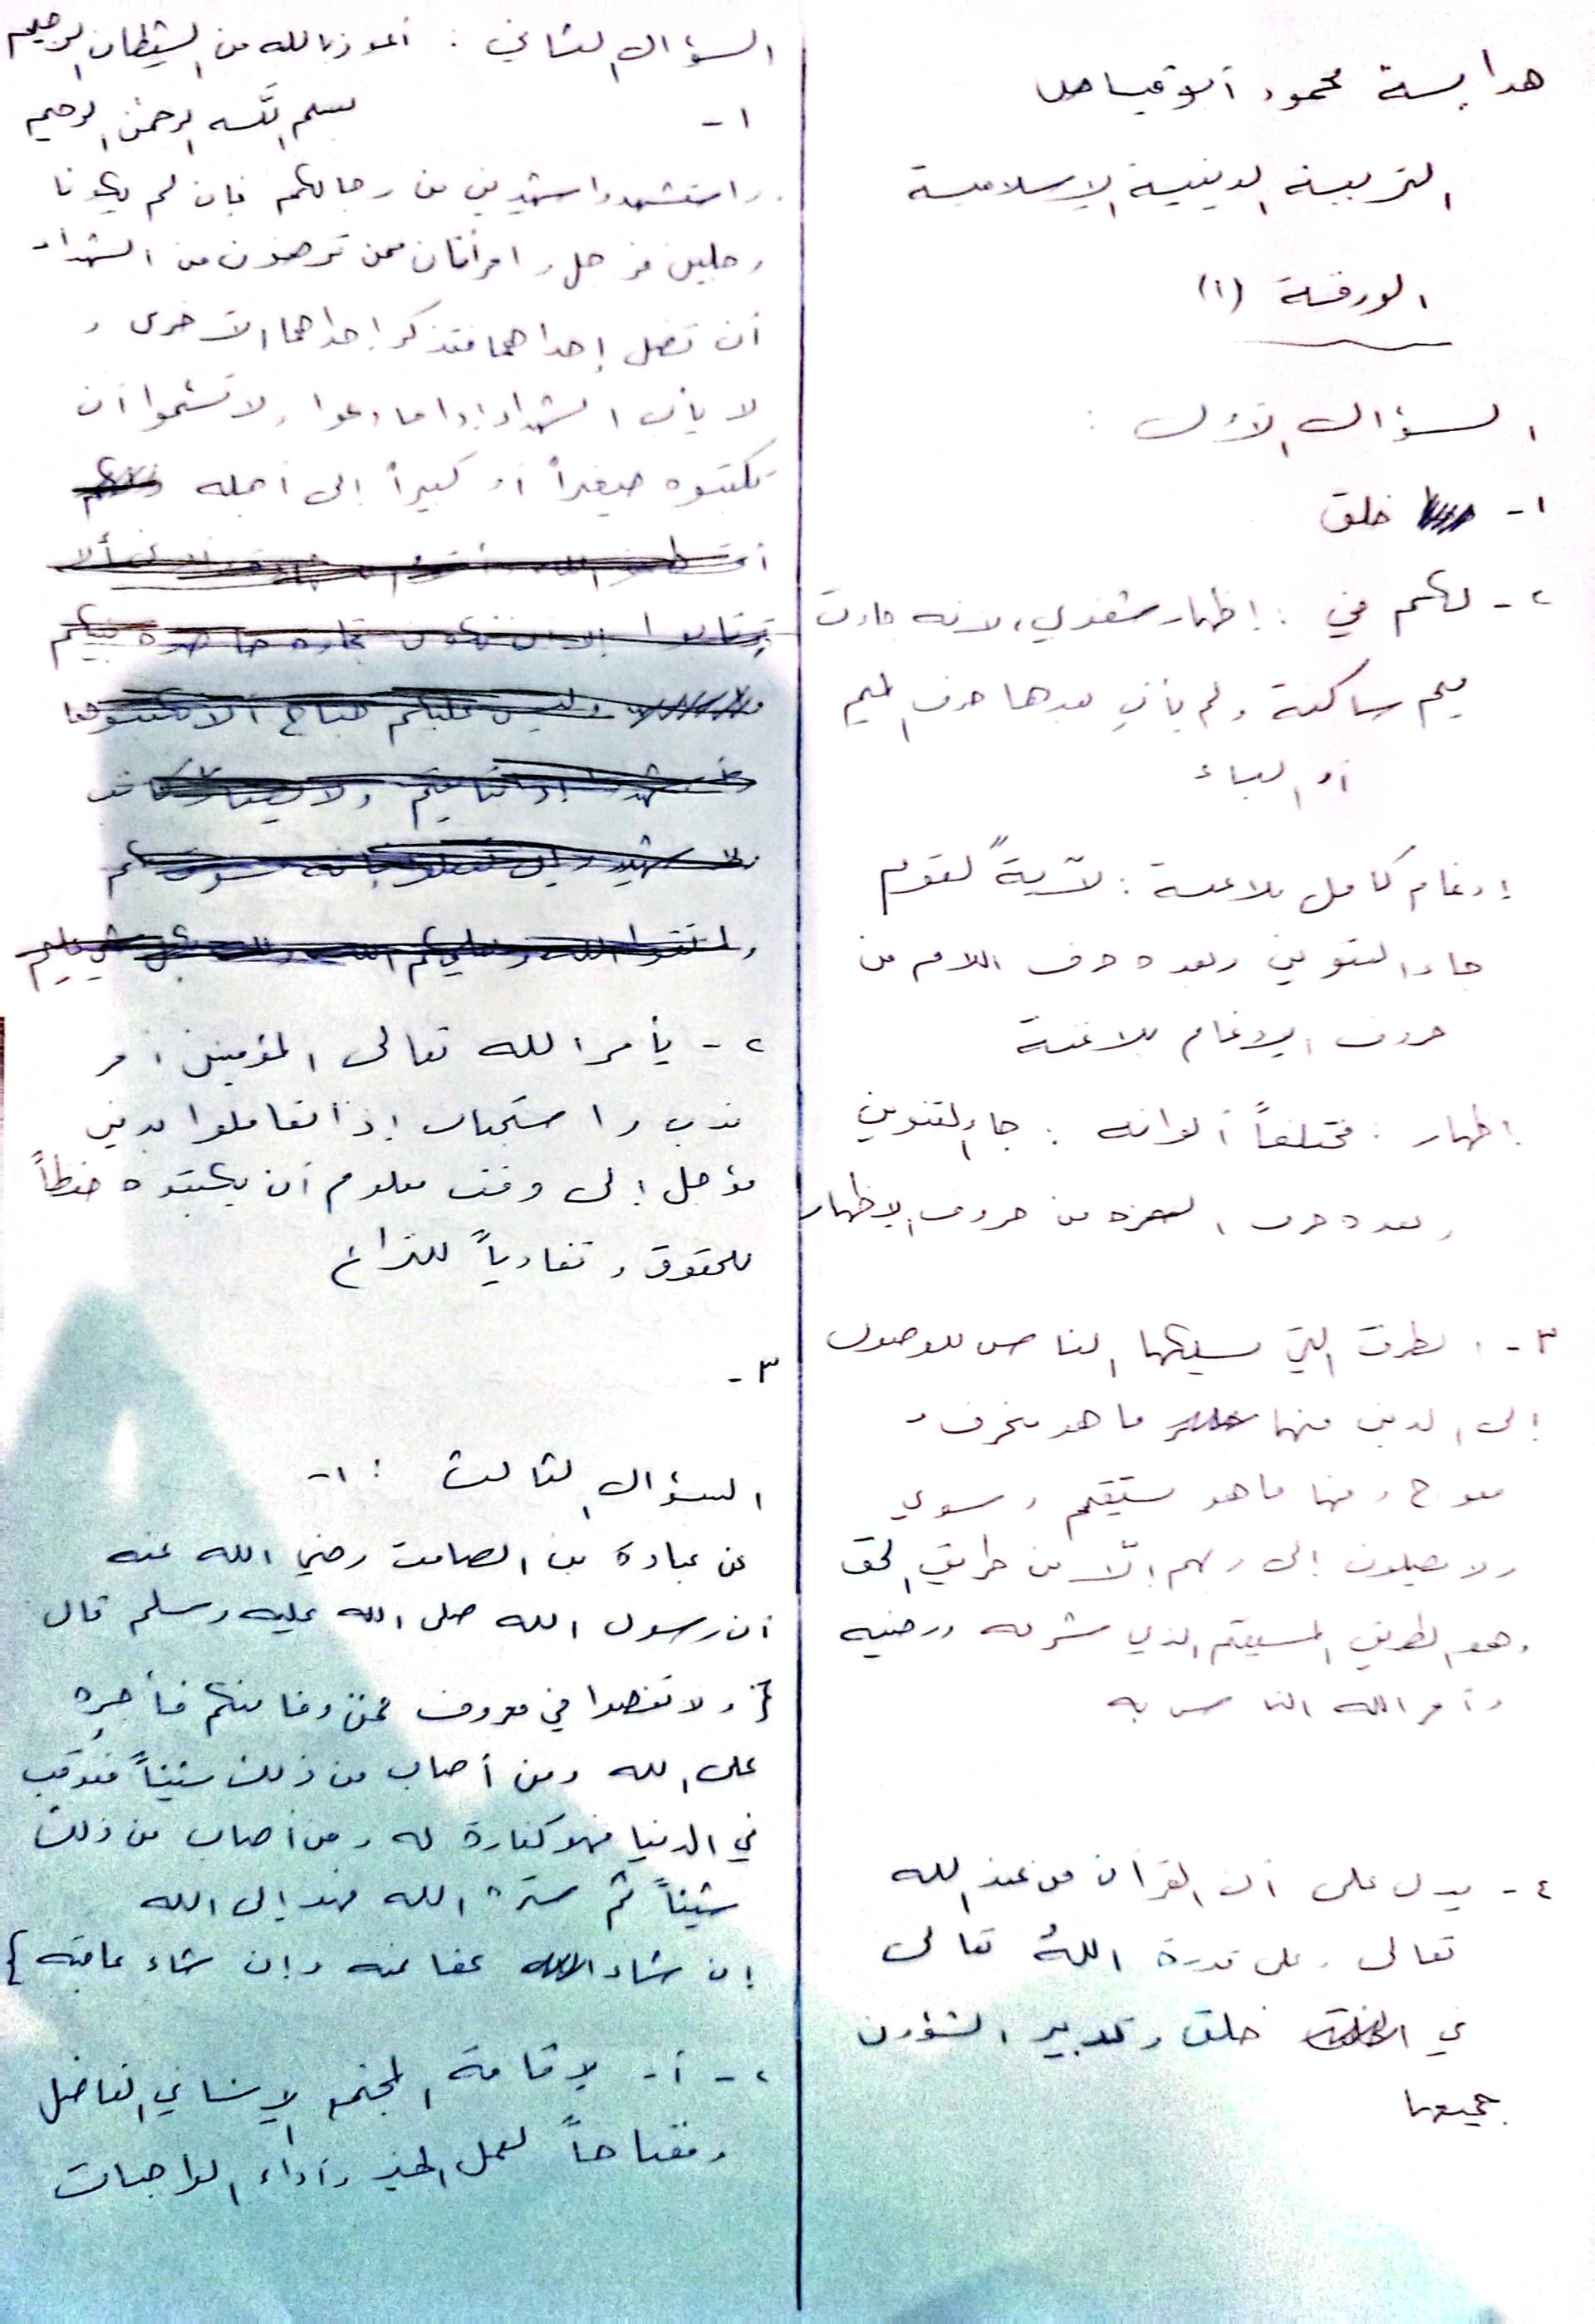 هدا بسة محمود أبو قباص
التربية الدينية الإسلامية
الورقة (١)
السؤال الأول :
١- خلق
٢- لهم في : إظهار شفوي، لأنه جاءت
ميم ساكنة ولم يأتي بعدها حرف الميم
أو الباء
إدغام كامل بلاغنة : لآيةً لقوم
جاء التنوين وبعده حرف اللام من
حروف الإدغام بلاغنة
إظهار : مختلفاً ألوانه : جاء التنوين
وبعده حرف الهمزة من حروف الإظهار
٣- الطرق التي يسلكها الناس للوصول
إلى الدين منها ما هو منحرف و
معوج ومنها ما هو مستقيم وسوي
ولا يصلون إلى ربهم إلّا من طريق الحق
وهو الطريق المستقيم الذي شرعه ورضيه
وأمر الله الناس به
٤- يدل على أن القرآن من عند الله
تعالى وعلى قدرة اللهُ تعالى
في خلق وتدبير الشؤون
جميعها
السؤال الثاني : أعوذ بالله من الشيطان الرجيم
١- بسم الله الرحمن الرحيم
واستشهدوا شهيدين من رجالكم فإن لم يكونا
رجلين فرجل وامرأتان ممن ترضون من الشهداء
أن تضل إحداهما فتذكر إحداهما الأخرى و
لا يأب الشهداء إذا ما دعوا ولا تسئموا أن
تكتبوه صغيراً أو كبيراً إلى أجله
٢- يأمر الله تعالى المؤمنين أمر
ندب واستحباب إذا تعاملوا بدين
مؤجل إلى وقت معلوم أن يكتبوه حفظاً
للحقوق وتفادياً للنزاع
٣-
السؤال الثالث : ١-
عن عبادة بن الصامت رضي الله عنه
أن رسول الله صلى الله عليه وسلم قال
{ ولا تعصوا في معروف فمن وفا منكم فأجره
على الله ومن أصاب من ذلك شيئاً فعوقب
في الدنيا فهو كفارة له ومن أصاب من ذلك
شيئاً ثم ستره الله فهو إلى الله
إن شاء الله عفا عنه وإن شاء عاقبه }
٢- أ- لإقامة المجتمع الإنساني الفاضل
ومفتاحاً لعمل الخير وأداء الواجبات